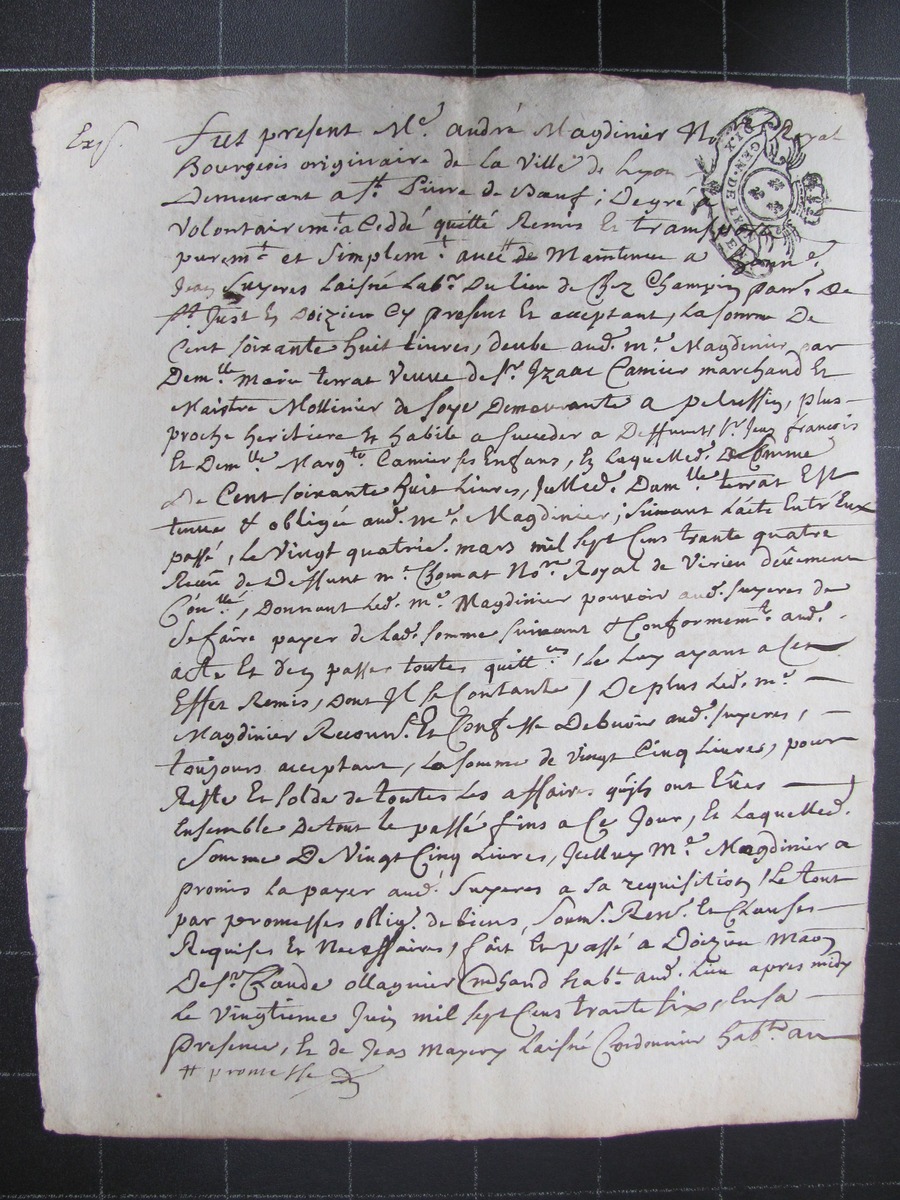 Exp.
Fut present Me. andré Magdinier Royal
Bourgeois originaire de la Ville de Lyon
Demeurant a St. Pierre de Bœuf; De gré &
Volontairemt. a Ceddé quitté Remis Et transporté
puremt. et Simplemt. avec # de Maintenue a honne.
Jean Suyeres Laisné Labr. Du lieu de Chez Champin parr. De
St. Just En Doizieu Cy present Et acceptant, La somme De
Cent Soixante huit Livres, deube aud. me. Magdinier par
Demlle. Marie terrat Veuve de Sr. Izaac Camier marchand Et
Maistre Mollinier de Soye Demeurante a pelussin, plus
proche heritiere Et habile a succeder a Deffunts Sr. Jean françois
Et Demlle. Margte. Camier ses Enfans, En Laquelle d. Somme
de Cent soixante huit Livres, Jcelled. Damlle. terrat Est
tenue & obligée aud. me. Magdinier; suivant L'acte Entr'Eux
passé, Le Vingt quatrie. mars mil sept Cens trante quatre
Receu de Deffunt me. Chomat Nore. Royal de Virieu düement
Conllé, Donnant Led. me. Magdinier pouvoir aud. Suyeres de
Se faire payer de Lad. somme suivant & Conformemt. aud.
acte Et d'en passer toutes quittces, Le Luy ayant a Cet
Effet Remis, Dont Jl se Contante, De plus Led. me.
Magdinier Reconn. Et Confesse Debvoir aud. Suyeres,
toujours acceptant, La somme de Vingt Cinq Livres, pour
Reste Et solde de toutes Les affaires qu'jls ont Eües
Ensemble De tout le passé fins a Ce Jour, Et Laquelled.
Somme De Vingt Cinq Livres, Jcelluy Me. Magdinier a
promis La payer aud. Suyeres a sa requisition, Le tout
par promesses oblig. de biens, Soums. Ren. Et Clauses
Requises Et Necessaires, fait Et passé a Doizieu Maison
De Sr. Claude ollagnier mchand habt. aud. Lieu apres midy
Le Vingtieme Juin mil sept Cens trante six, En sa
Presence, Et de Jean Mayery Laisné Cordonnier habt. au
# promesse
GEN. DE LYON
SIX
DEN